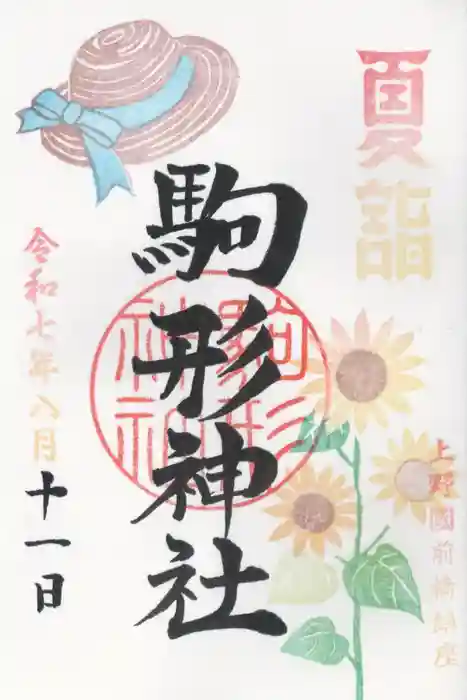 夏詣
上野國前橋鎮座
駒形神社
駒形
神社
令和七年八月十一日